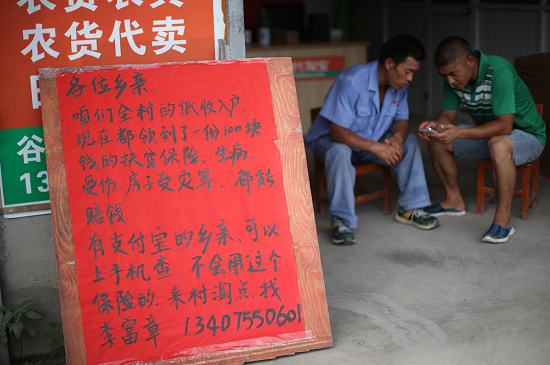 农货代卖
谷
13
各位乡亲:
咱们全村的低收入户
现在都领到了一份100块
钱的扶贫保险、生病、
受伤、房子受灾等、都能
赔钱
有支付宝的乡亲、可以
上手机查 不会用这个
保险的、来村淘点、找
李富章 13407550601